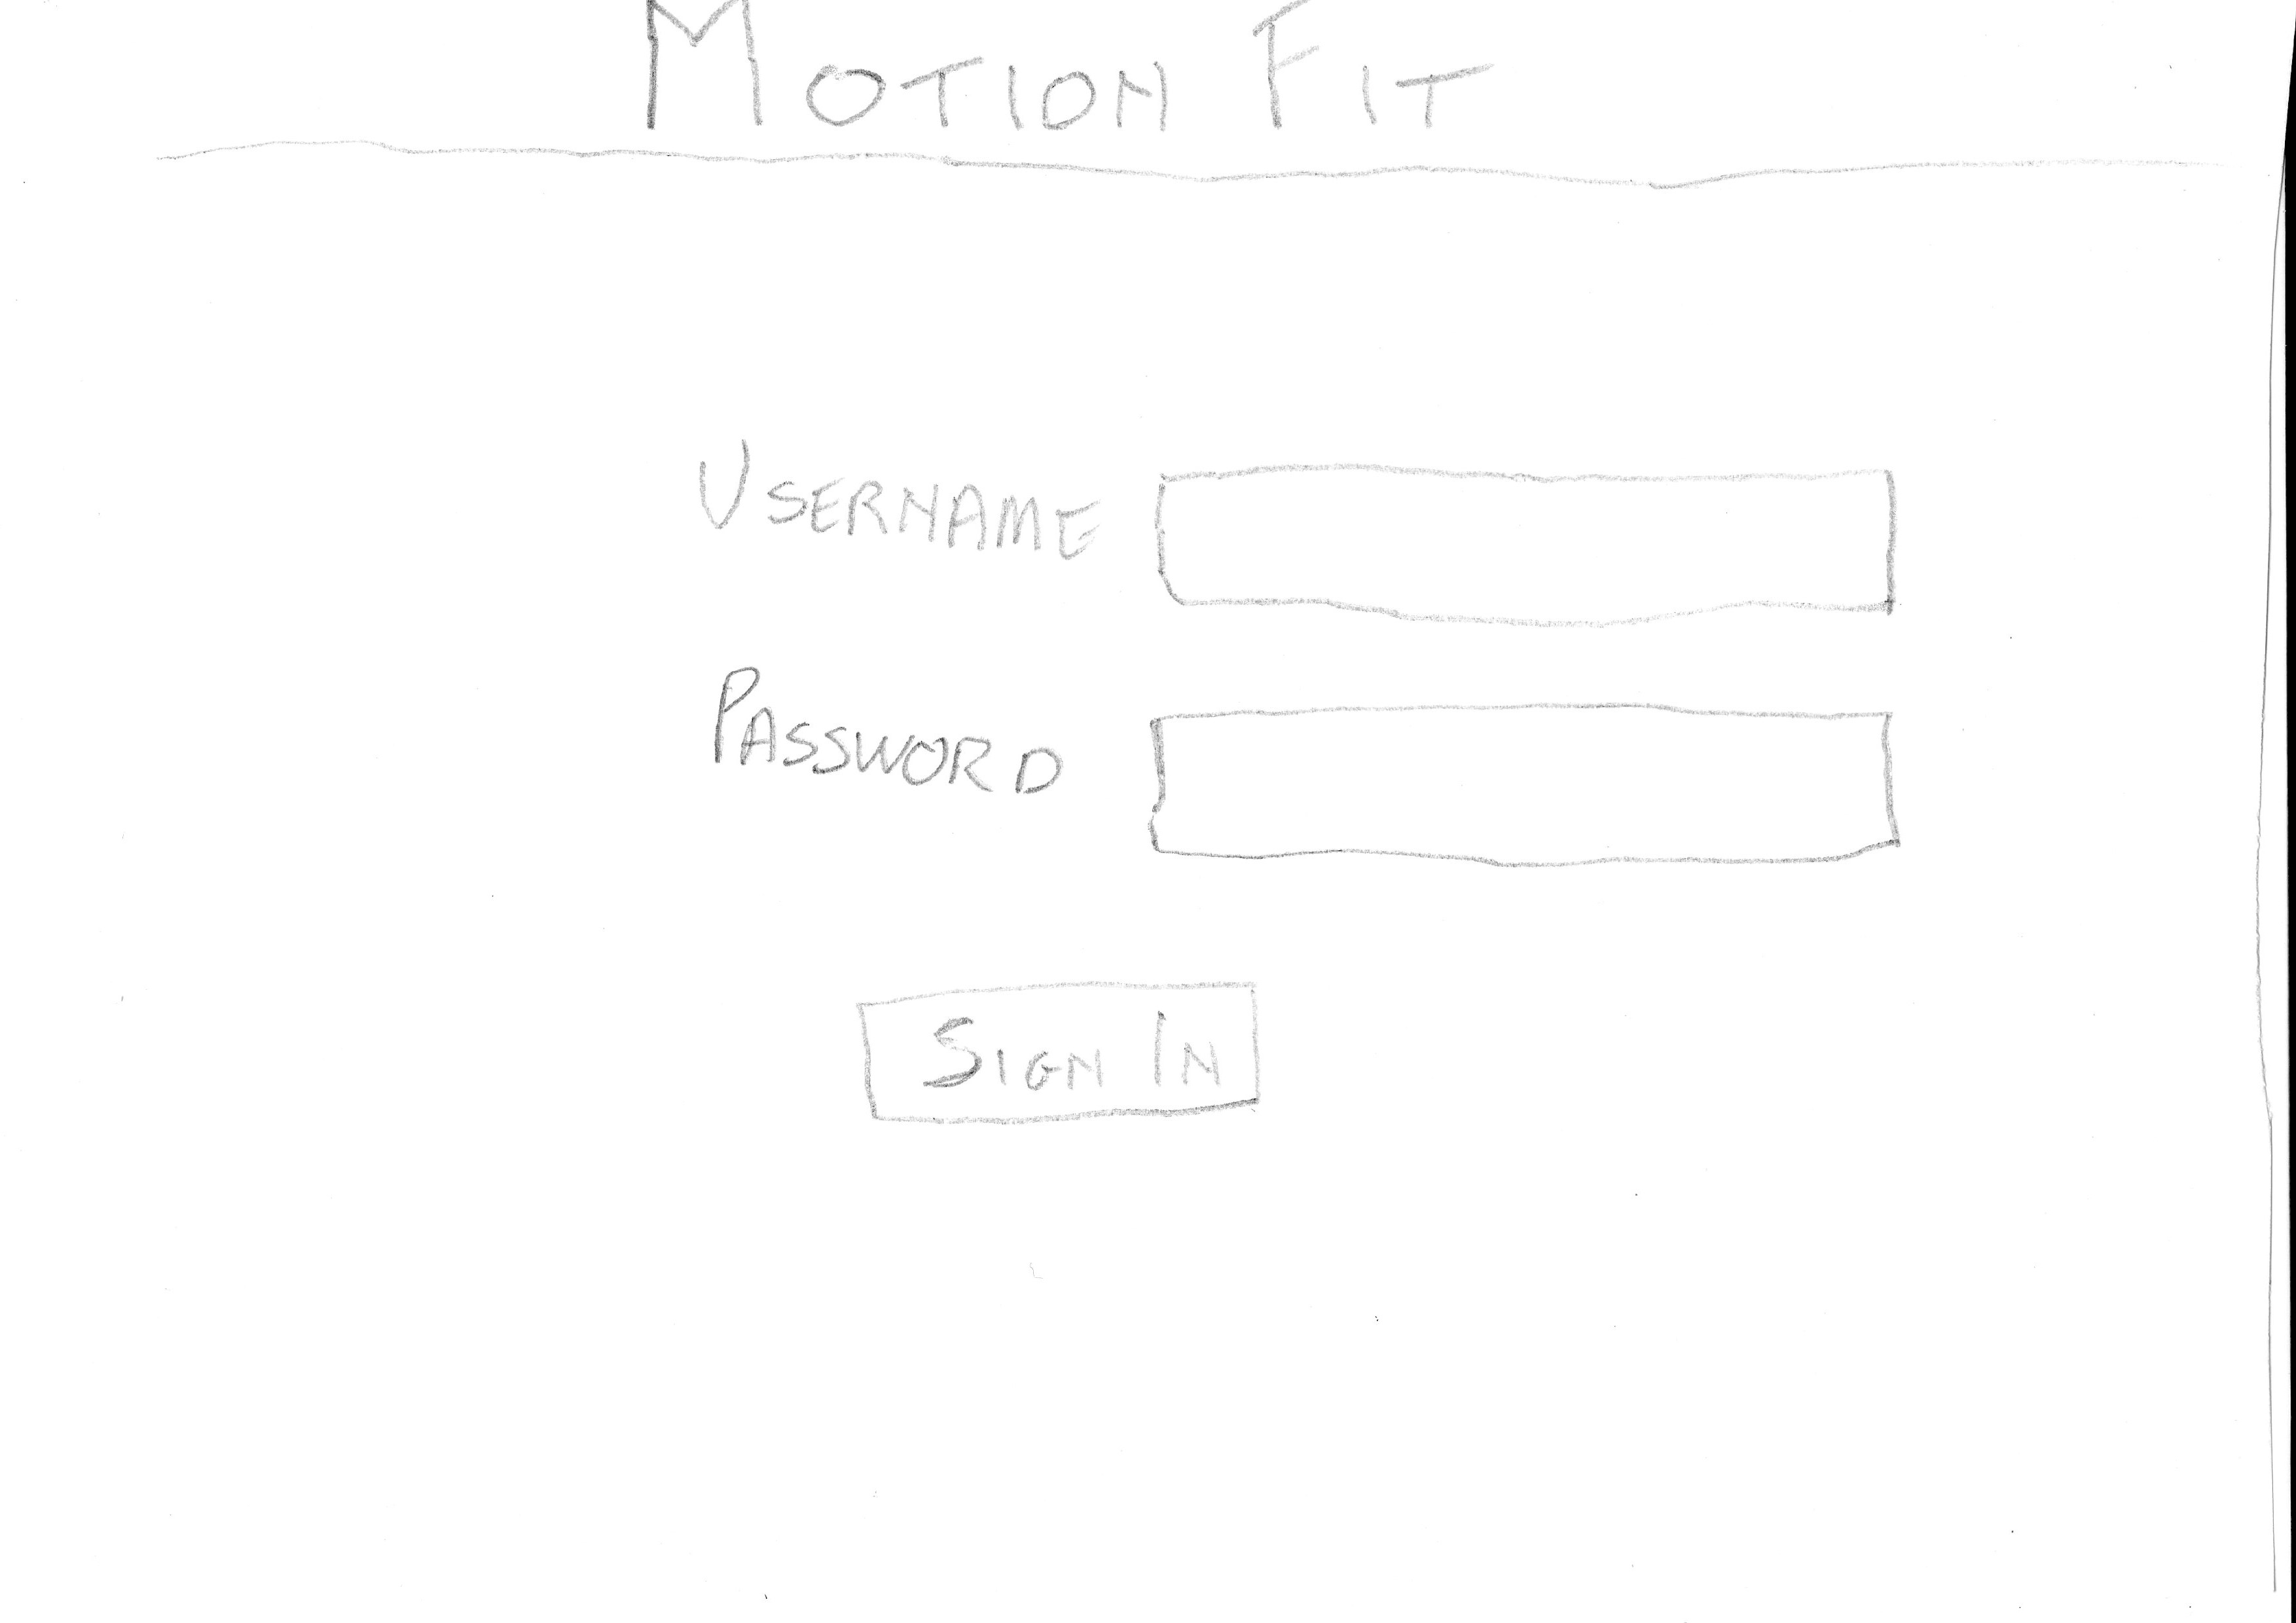 Motion Fit
Username
Password
Sign In